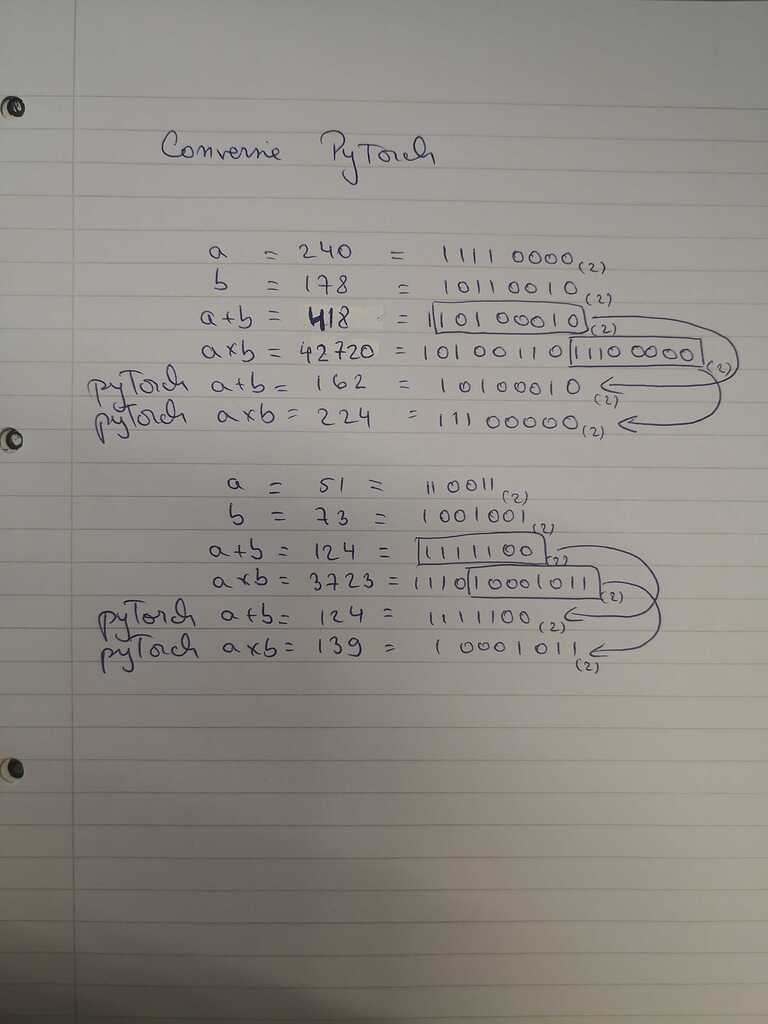 Conversie PyTorch
a = 240 = 11110000(2)
b = 178 = 10110010(2)
a+b = 418 = 110100010(2)
a×b = 42720 = 1010011011100000(2)
pyTorch a+b = 162 = 10100010(2)
pyTorch a×b = 224 = 11100000(2)
a = 51 = 110011(2)
b = 73 = 1001001(2)
a+b = 124 = 1111100(2)
a×b = 3723 = 111010001011(2)
pyTorch a+b = 124 = 1111100(2)
pyTorch a×b = 139 = 10001011(2)